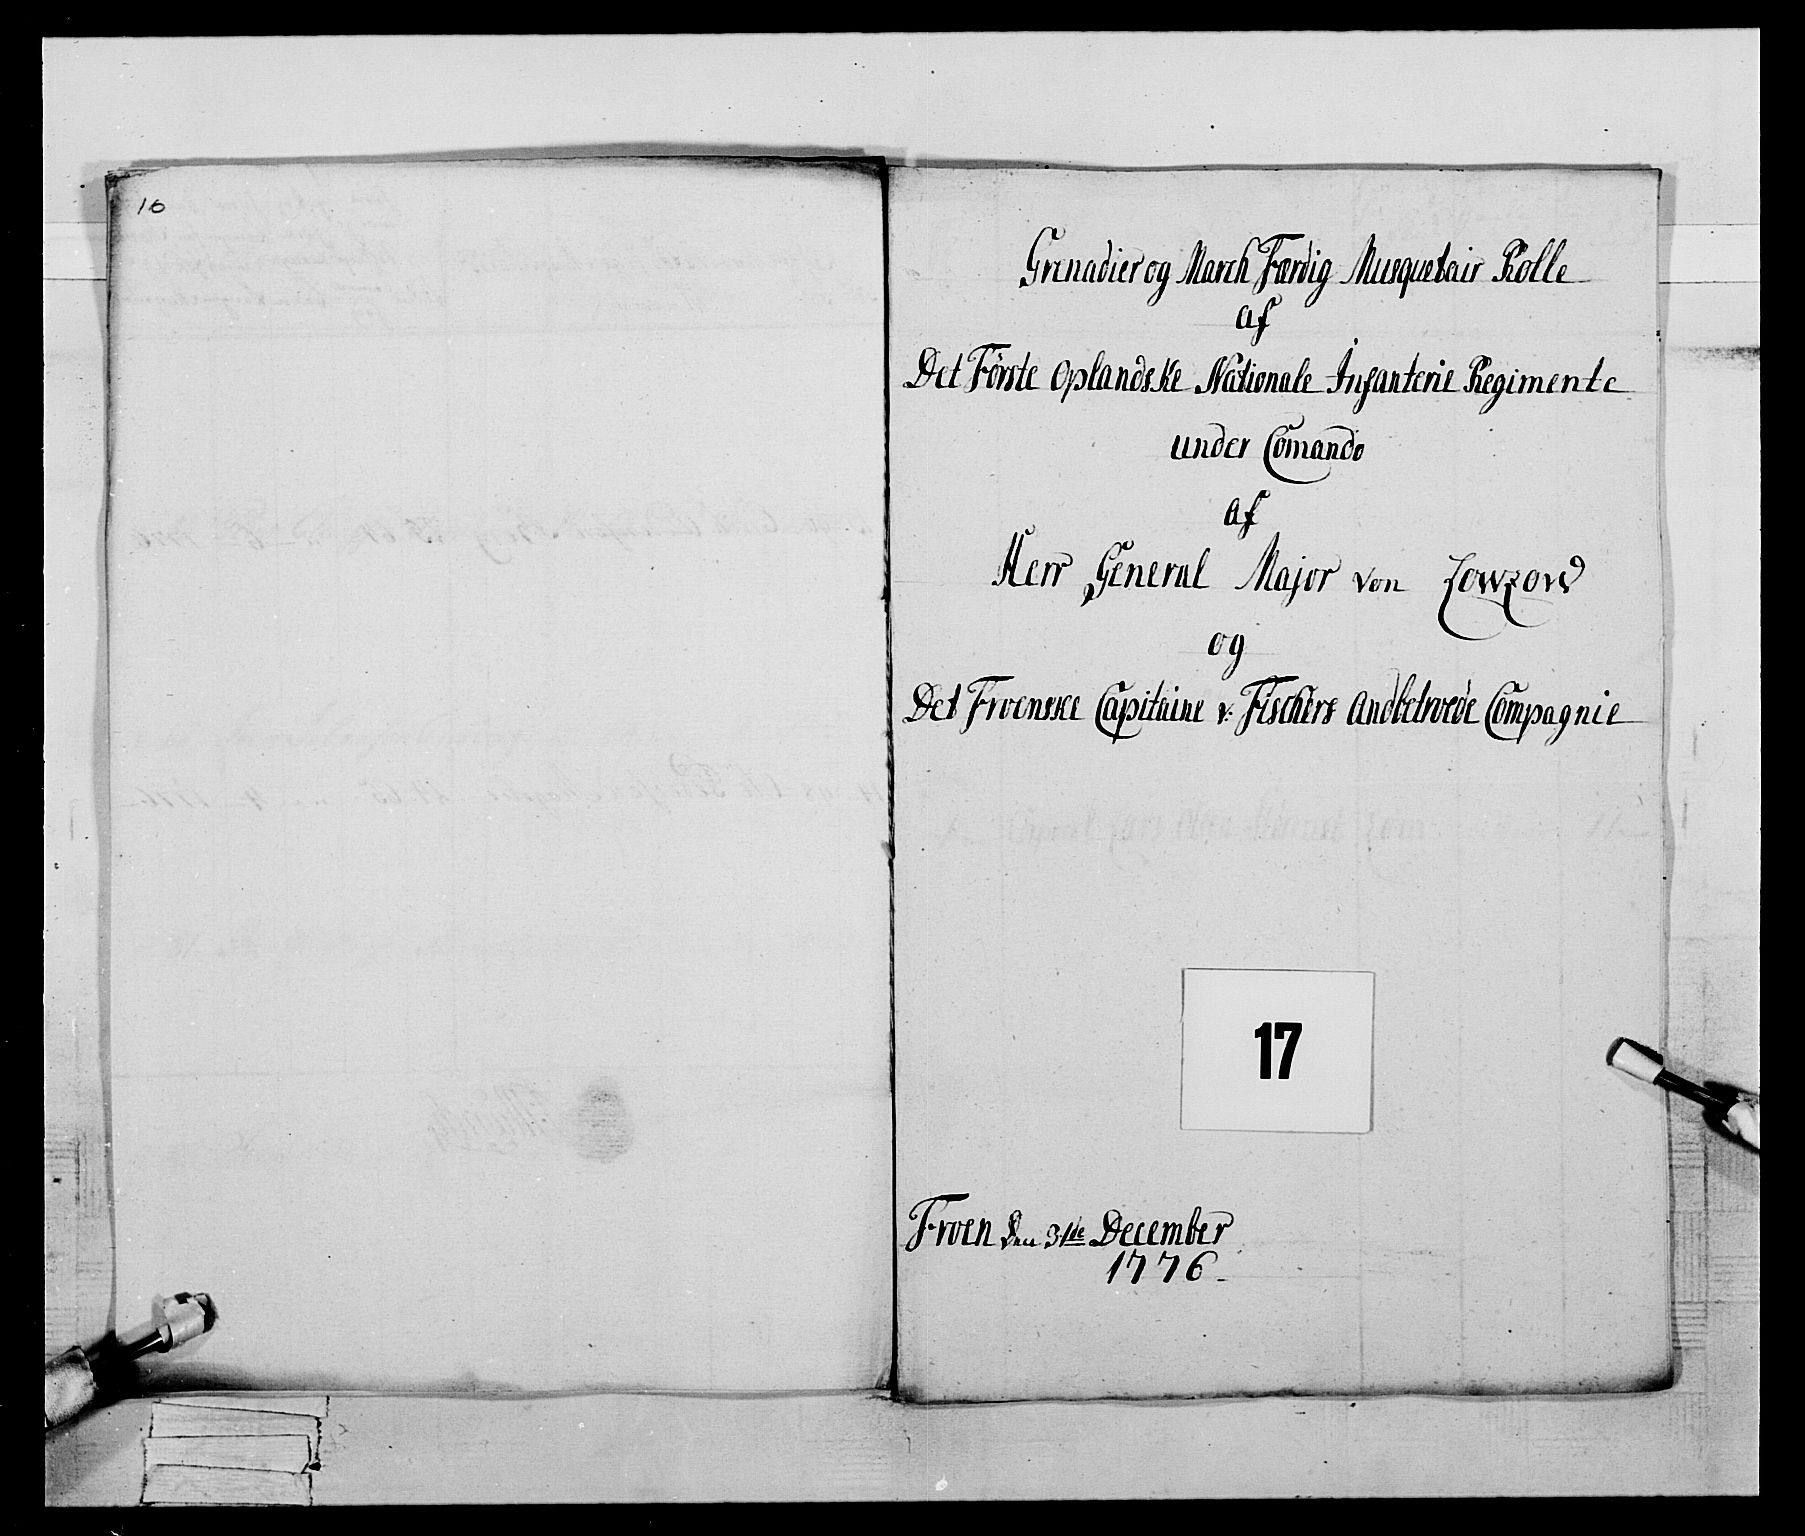 16
Grenadier og March Færdig Musquetair Rolle
af
Det Förste Oplandske Nationale Infanterie Regimente
under Comando
af
Herr General Major von Lowzow
og
Det Froenske Capitaine v: Fischers Anbetroede Compagnie
17
Froen Den 31de December
1776